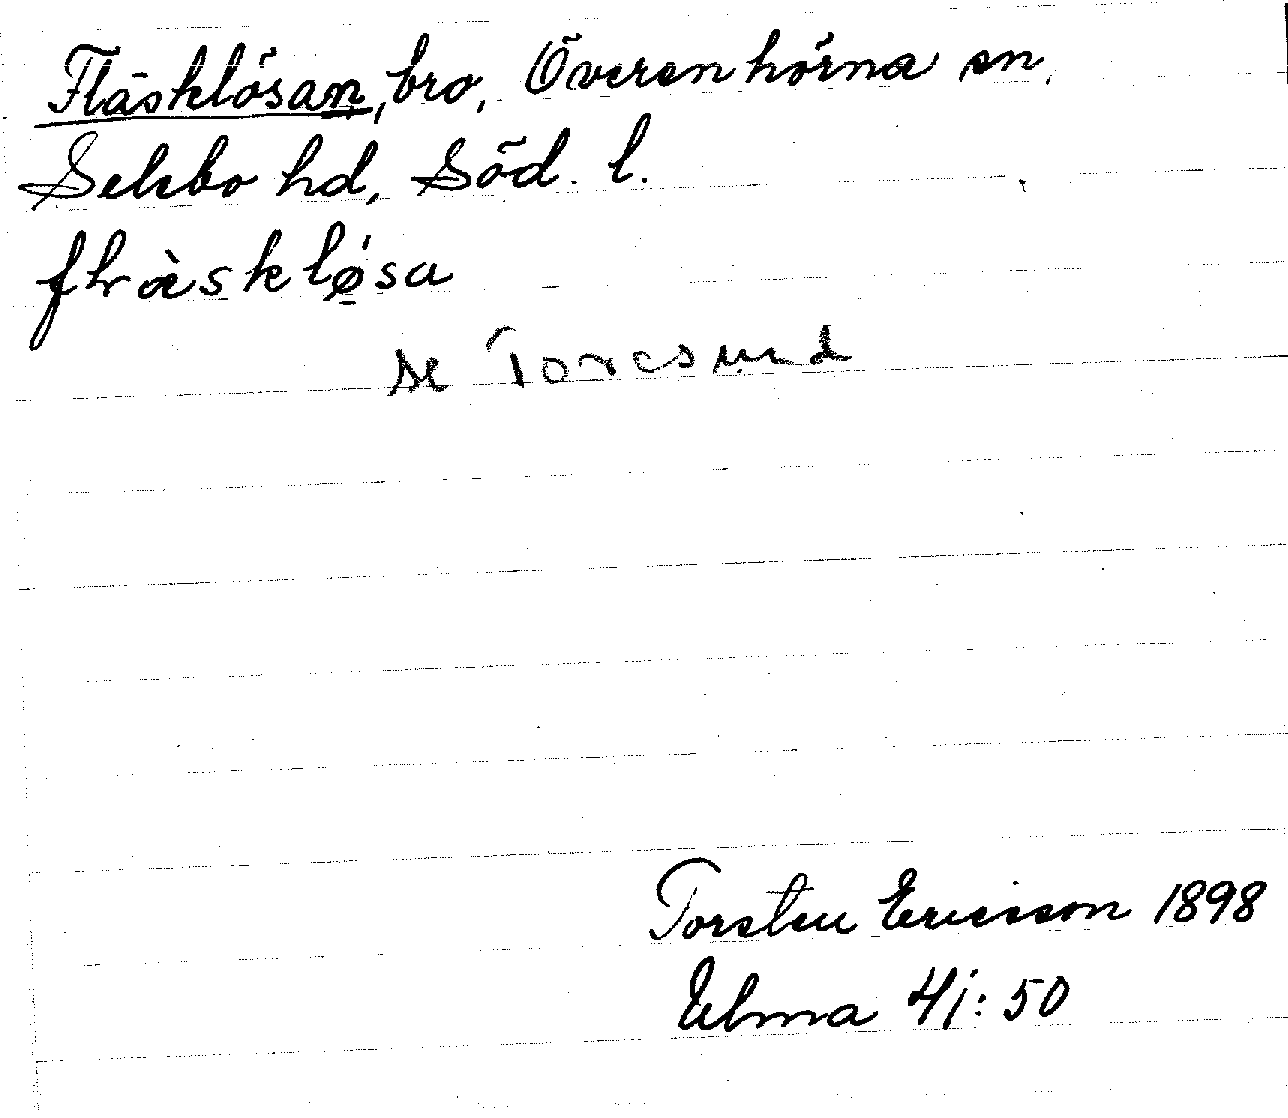 Fläsklösan, bro, Överenhörna sn,
Selebo hd, Söd. l.
flràsklǿ̱sa
se Toresund
Torsten Ericsson 1898
Elma 4j: 50